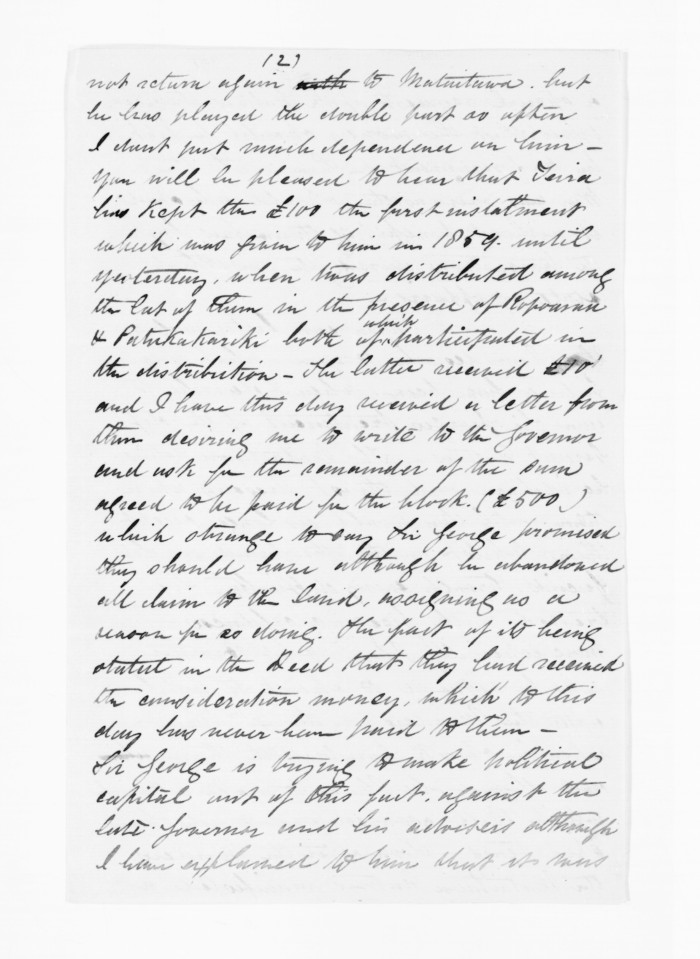 (2)
not return again with to Mataitawa. but
he has played the double part so often
I dont put much dependence on him –
You will be pleased to hear that Teira
has kept the £100 the first instalment
which was given to him in 1859. until
yesterday, when twas distributed among
the lot of them in the presence of Ropoama
& Patukakariki both of which participated in
the distribution – the latter received £10
and I have this day received a letter from
them desiring me to write to the Governor
and ask for the remainder of the sum
agreed to be paid for the block. (£500)
which strange to say Sir George promised
they should have although he abandoned
all claim to the land, assigning as a
reason for so doing. the fact of its being
stated in the Deed that they had received
the consideration money, which to this
day has never been paid to them –
Sir George is trying to make political
capital out of this fact, against the
late Governor and his advisers although
I have explained to him that it was